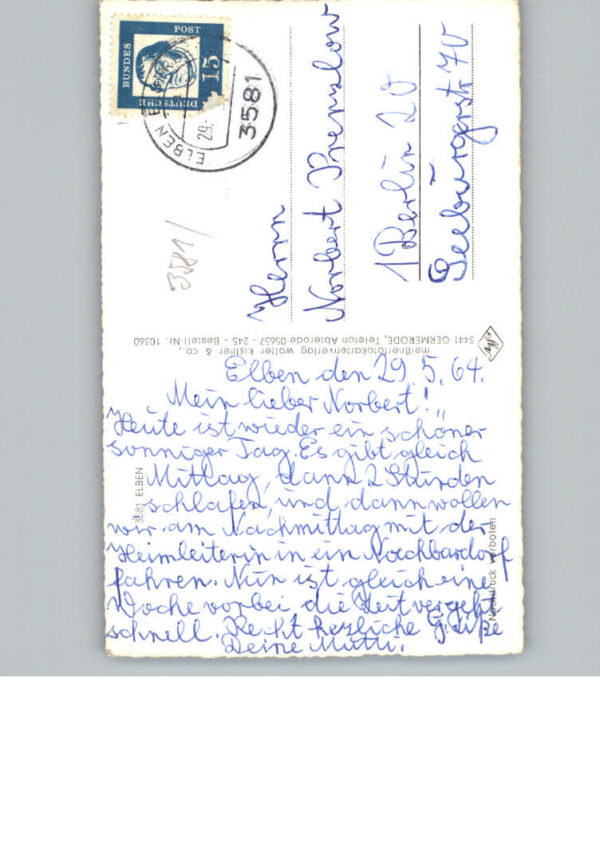 DEUTSCHE
BUNDES
POST
15
ELBEN
29.
3581
3581/
Herrn
Norbert Prenzlow
1 Berlin 20
Seeburgerstr 70
meißnerfotokartenverlag walter kistner & co.,
3441 GERMERODE, Telefon Abterode 05657 - 245 - Bestell-Nr. 10360
Agfa
3581 ELBEN
Nachdruck verboten
Elben den 29.5.64.
Mein lieber Norbert!"
Heute ist wieder ein schöner
sonniger Tag. Es gibt gleich
Mittag, dann 2 Stunden
schlafen, und dann wollen
wir am Nachmittag mit der
Heimleiterin in ein Nachbardorf
fahren. Nun ist gleich eine
Woche vorbei die Zeit vergeht
schnell. Recht herzliche Grüße
Deine Mutti.